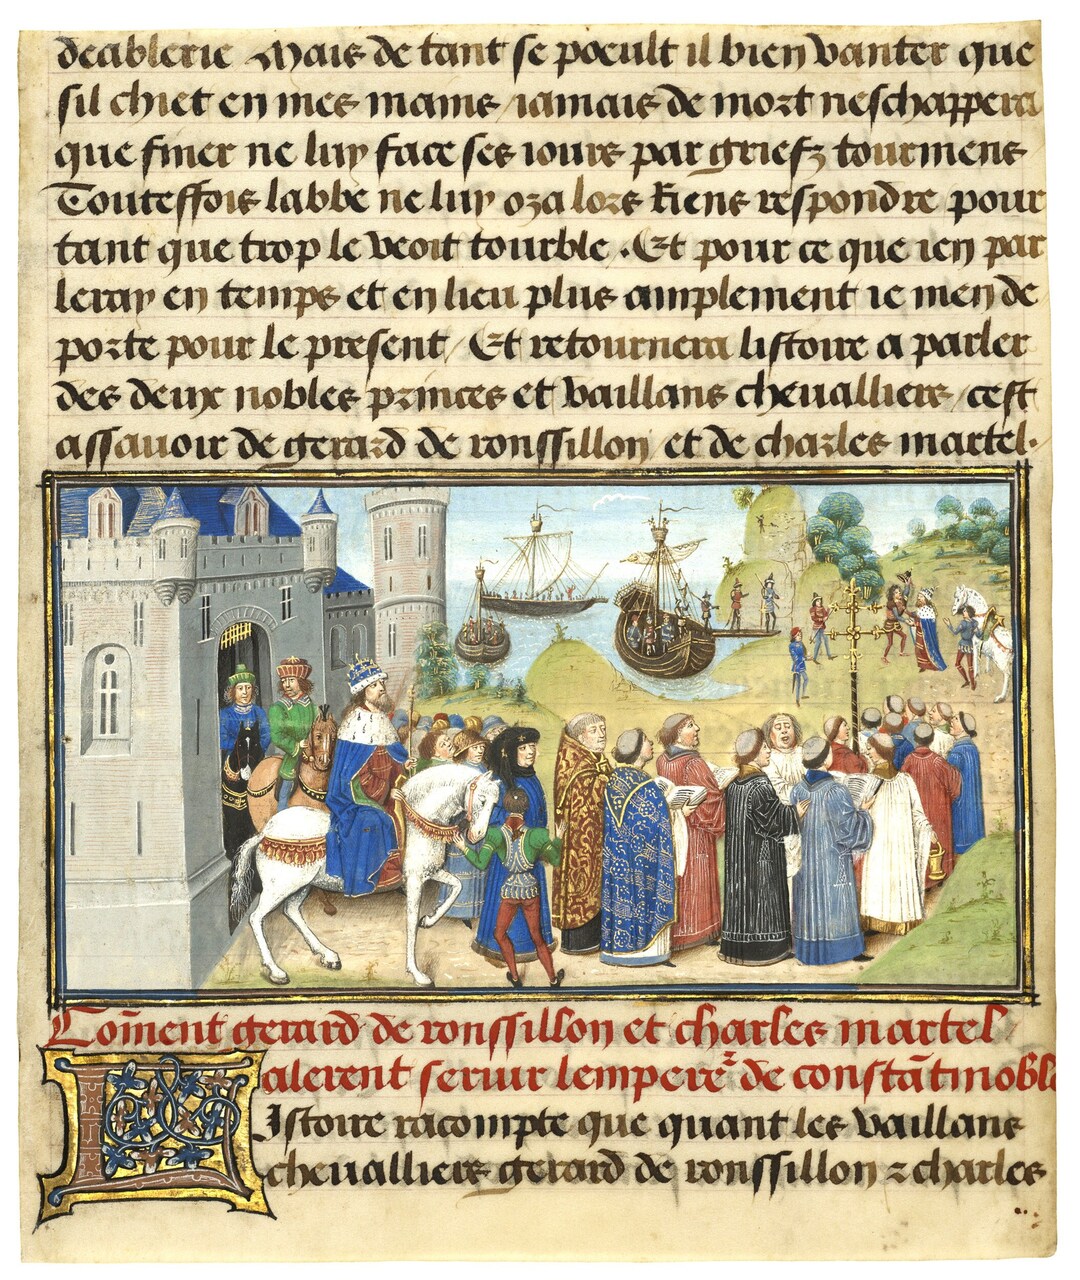 deablerie Mais de tant se poeult il bien vanter que
sil chiet en mes mains / iamais de mort neschappera
que finer ne luy face ses iours par griefz tourmens
Touteffois labbe ne luy oza lors Riens respondre pour
tant que trop le veoit tourble . Et pour ce que ien par
leray en temps et en lieu plus amplement ie men de
porte pour le present / Et retournera listoire a parler
des deux nobles princes et vaillans chevalliers / cest
assavoir de gerard de ronssillon et de charles martel.
Coment gerard de ronssillon et charles martel
alerent servir lempere de constātinoble
Listoire racompte que quant les vaillans
chevalliers gerard de ronssillon z charles